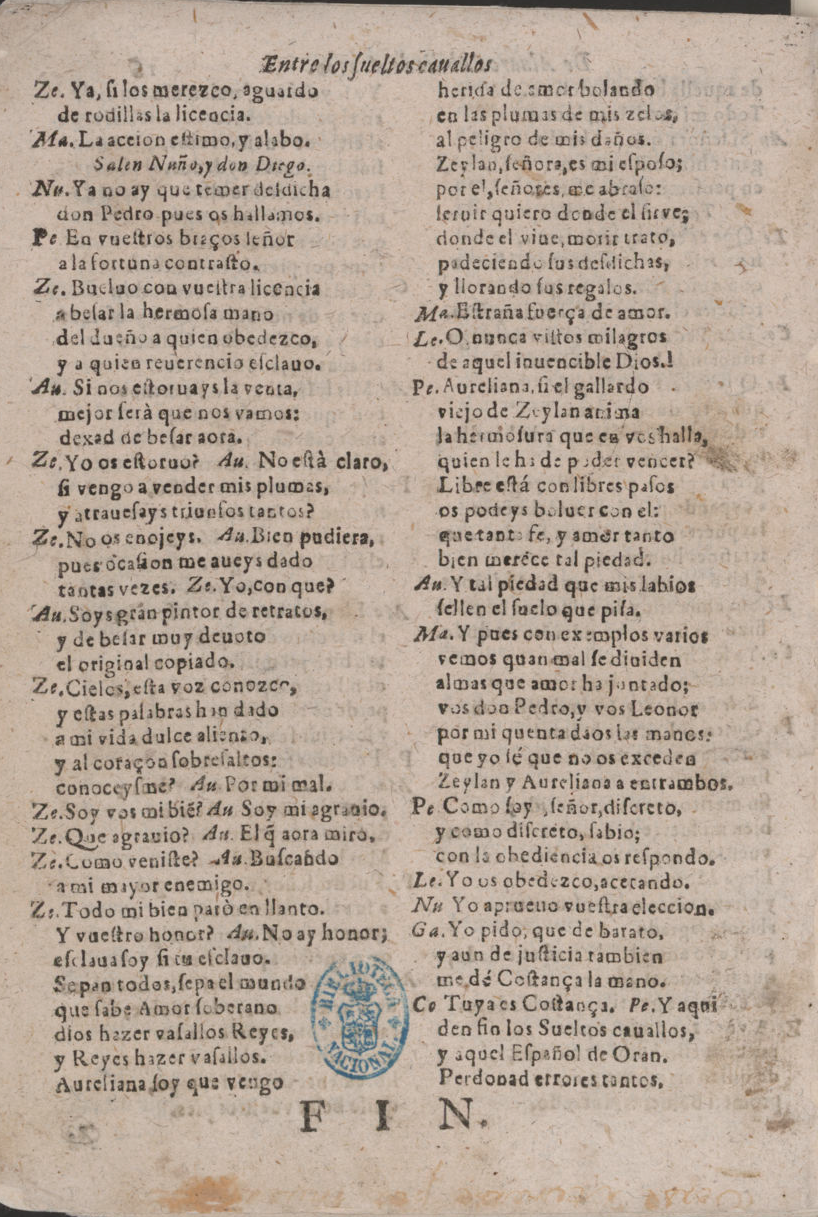 Entre los ſueltos cauallos
Ze. Ya, ſi los merezco, aguardo
de rodillas la licencia.
Ma. La accion eſtimo, y alabo.
Salen Nuño, y don Diego.
Nu. Ya no ay que temer deſdicha
don Pedro pues os hallamos.
Pe En vueſtros braços ſeñor
a la fortuna contraſto.
Ze. Bueluo con vueſtra licencia
a beſar la hermoſa mano
del dueño a quien obedezco,
y a quien reuerencio eſclauo.
Au. Si nos eſtoruays la venta,
mejor ſerà que nos vamos:
dexad de beſar aora.
Ze. Yo os eſtoruo? Au. No eſtà claro,
ſi vengo a vender mis plumas,
y atraueſays triunfos tantos?
Ze. No os enojeys. Au. Bien pudiera,
pues ocaſion me aueys dado
tantas vezes. Ze. Yo, con que?
Au. Soys gran pintor de retratos,
y de beſar muy deuoto
el original copiado.
Ze. Cielos, eſta voz conozco,
y eſtas palabras han dado
a mi vida dulce aliento,
y al coraçon ſobreſaltos:
conoceyſme? Au Por mi mal.
Ze. Soy vos mi biẽ? Au Soy mi agrauio.
Ze. Que agrauio? Au. El q̃ aora miro.
Ze. Como veniſte? Au. Buſcando
a mi mayor enemigo.
Ze. Todo mi bien parò en llanto.
Y vueſtro honor? Au. No ay honor;
eſclaua ſoy ſi tu eſclauo.
Sepan todos, ſepa el mundo
que ſabe Amor ſoberano
dios hazer vaſallos Reyes,
y Reyes hazer vaſallos.
Aureliana ſoy que vengo
herida de amor bolando
en las plumas de mis zelos,
al peligro de mis daños.
Zeylan, ſeñora, es mi eſpoſo;
por el, ſeñores, me abraſo:
ſeruir quiero donde el ſirve;
donde el viue, morir trato,
padeciendo ſus deſdichas,
y llorando ſus regalos.
Ma. Eſtraña fuerça de amor.
Le. O nunca viſtos milagros
de aquel inuencible Dios!
Pe. Aureliana, ſi el gallardo
viejo de Zeylan anima
la hermoſura que en vos halla,
quien le ha de poder vencer?
Libre eſtá con libres paſos
os podeys boluer con el:
que tanta fe, y amor tanto
bien merece tal piedad.
Au. Y tal piedad que mis labios
ſellen el ſuelo que piſa.
Ma. Y pues con exemplos varios
vemos quan mal ſe diuiden
almas que amor ha juntado;
vos don Pedro, y vos Leonor
por mi quenta daos las manos:
que yo ſé que no os exceden
Zeylan y Aureliana a entrambos.
Pe Como ſoy, ſeñor, diſcreto,
y como diſcreto, ſabio;
con la obediencia os reſpondo.
Le. Yo os obedezco, acetando.
Nu Yo aprueuo vueſtra eleccion.
Ga. Yo pido, que de barato,
y aun de juſticia tambien
me dé Coſtança la mano.
Co Tuya es Coſtança. Pe. Y aqui
den fin los Sueltos cauallos,
y aquel Eſpañol de Oran.
Perdonad errores tantos.
F I N.
BIBLIOTECA NACIONAL